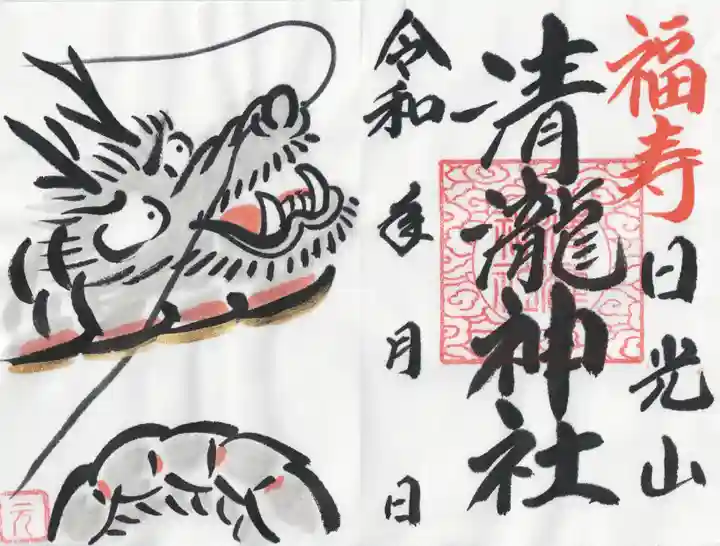 福寿
日光山
清瀧神社
令和 年 月 日
元